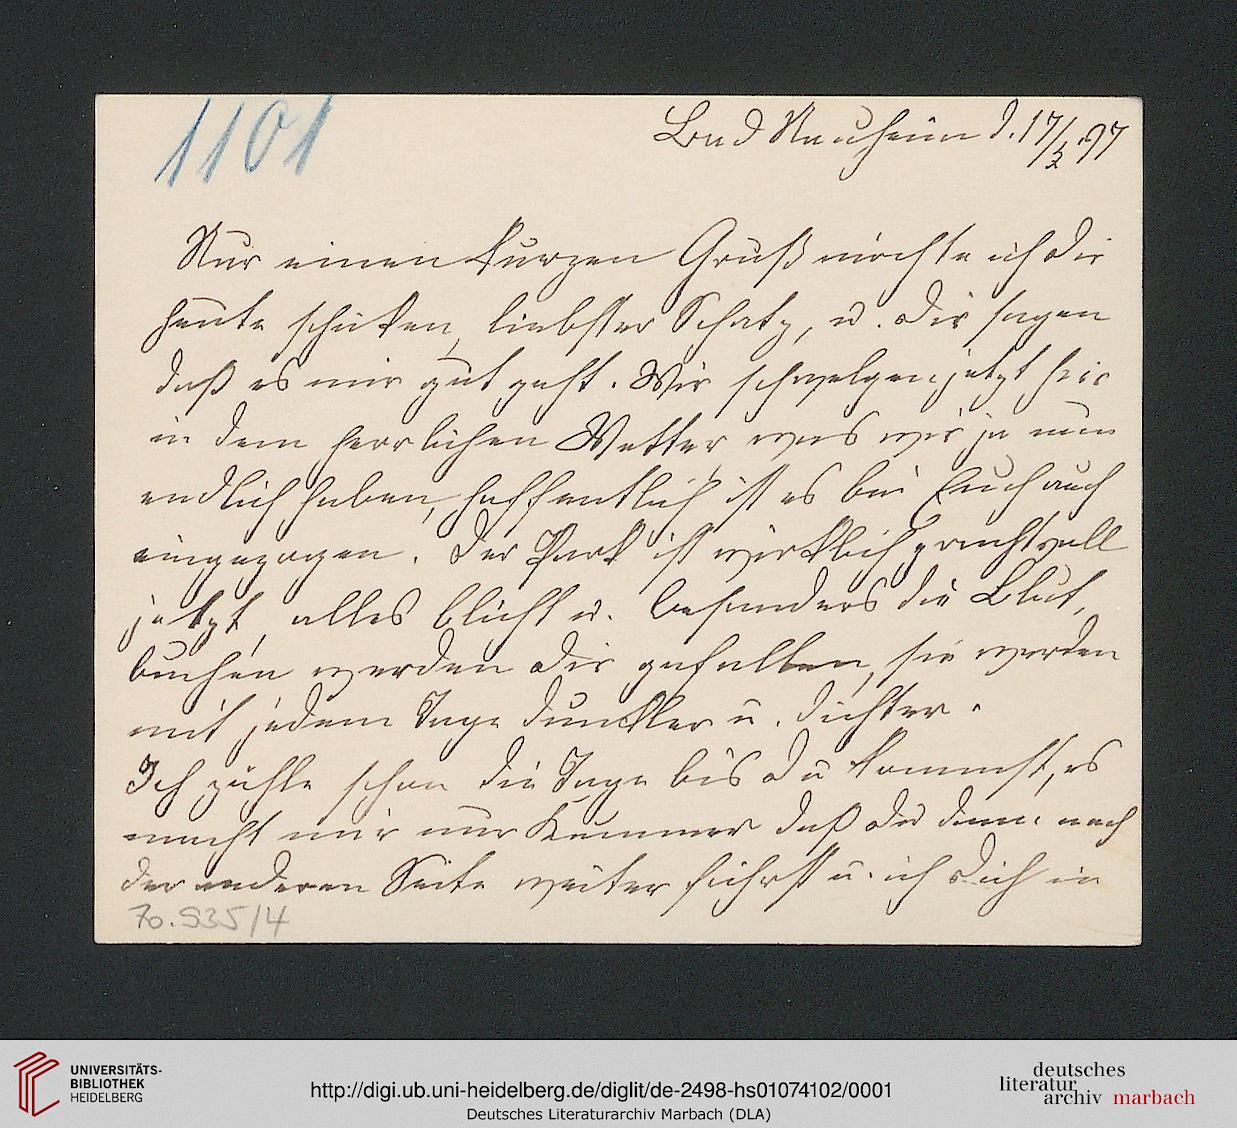 1101
Bad Nauheim d. 17/5. 97
Nur einen kurzen Gruß möchte ich Dir
heute schicken, liebster Schatz, u. Dir sagen
daß es mir gut geht. Wir schwelgen jetzt hier
in dem herrlichen Wetter was wir ja nun
endlich haben, hoffentlich ist es bei Euch auch
eingezogen. Der Park ist wirklich prachtvoll
jetzt, alles blüht u. besonders die Blut,
buchen werden Dir gefallen, sie werden
mit jedem Tage dunkler u. dichter.
Ich zähle schon die Tage bis Du kommst, es
macht mir nur Kummer daß Du dann nach
der anderen Seite weiter fährst u. ich Dich in
70.935/4
UNIVERSITÄTS-
BIBLIOTHEK
HEIDELBERG
http://digi.ub.uni-heidelberg.de/diglit/de-2498-hs01074102/0001
Deutsches Literaturarchiv Marbach (DLA)
deutsches
literatur
archiv marbach